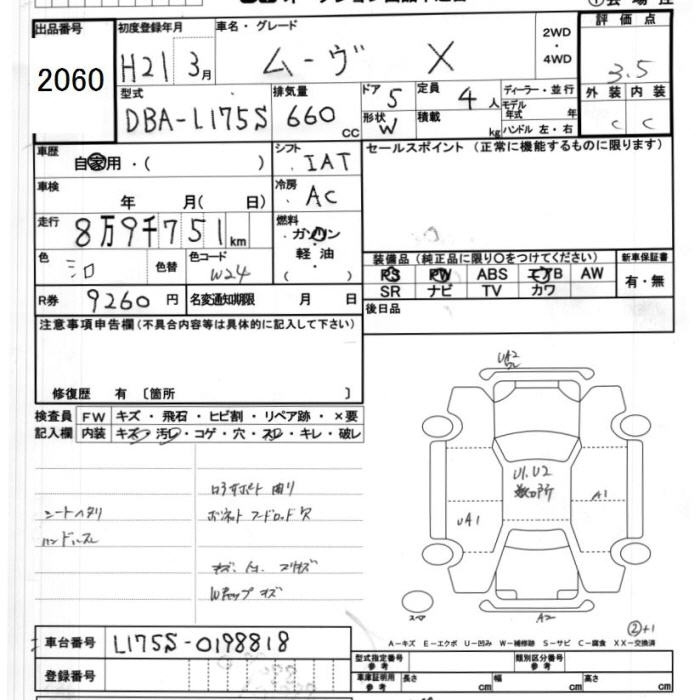 出品番号 初度登録年月 車名・グレード 2WD・4WD 評価点
2060 H21 3月 ムーヴ X 3.5
外装 内装
C C
型式 排気量 ドア 定員 ディーラー・並行
DBA-L175S 660cc 5 4人 モデル年式 年
形状 積載 ハンドル 左・右
W kg
車歴 シフト セールスポイント (正常に機能するものに限ります)
自家用・( ) IAT
車検 冷房
年 月(日) AC
走行 燃料
8万9千751km ガソリン
軽油
( )
色 色替 色コード
シロ W24
装備品 (純正品に限り〇をつけてください) 新車保証書
PS PW ABS エアB AW 有・無
SR ナビ TV カワ
R券 9260円 名変通知期限 月 日 後日品
注意事項申告欄(不具合内容等は具体的に記入して下さい)
修復歴 有 〔箇所 〕
検査員 FW キズ・飛石・ヒビ割・リペア跡・×要
記入欄 内装 キズ・汚レ・コゲ・穴・スレ・キレ・破レ
シートヘタリ
ハンドルスレ
ボンネットフードロッド欠
UA2
U1.U2
数ヶ所
A1
UA1
スペア
A2
②+1
A-キズ E-エクボ U-凹み W-補修跡 S-サビ C-腐食 XX-交換済
車台番号 L175S-0198818
登録番号
型式指定番号参考 類別区分番号参考
車庫証明用参考 長さ cm 幅 cm 高さ cm